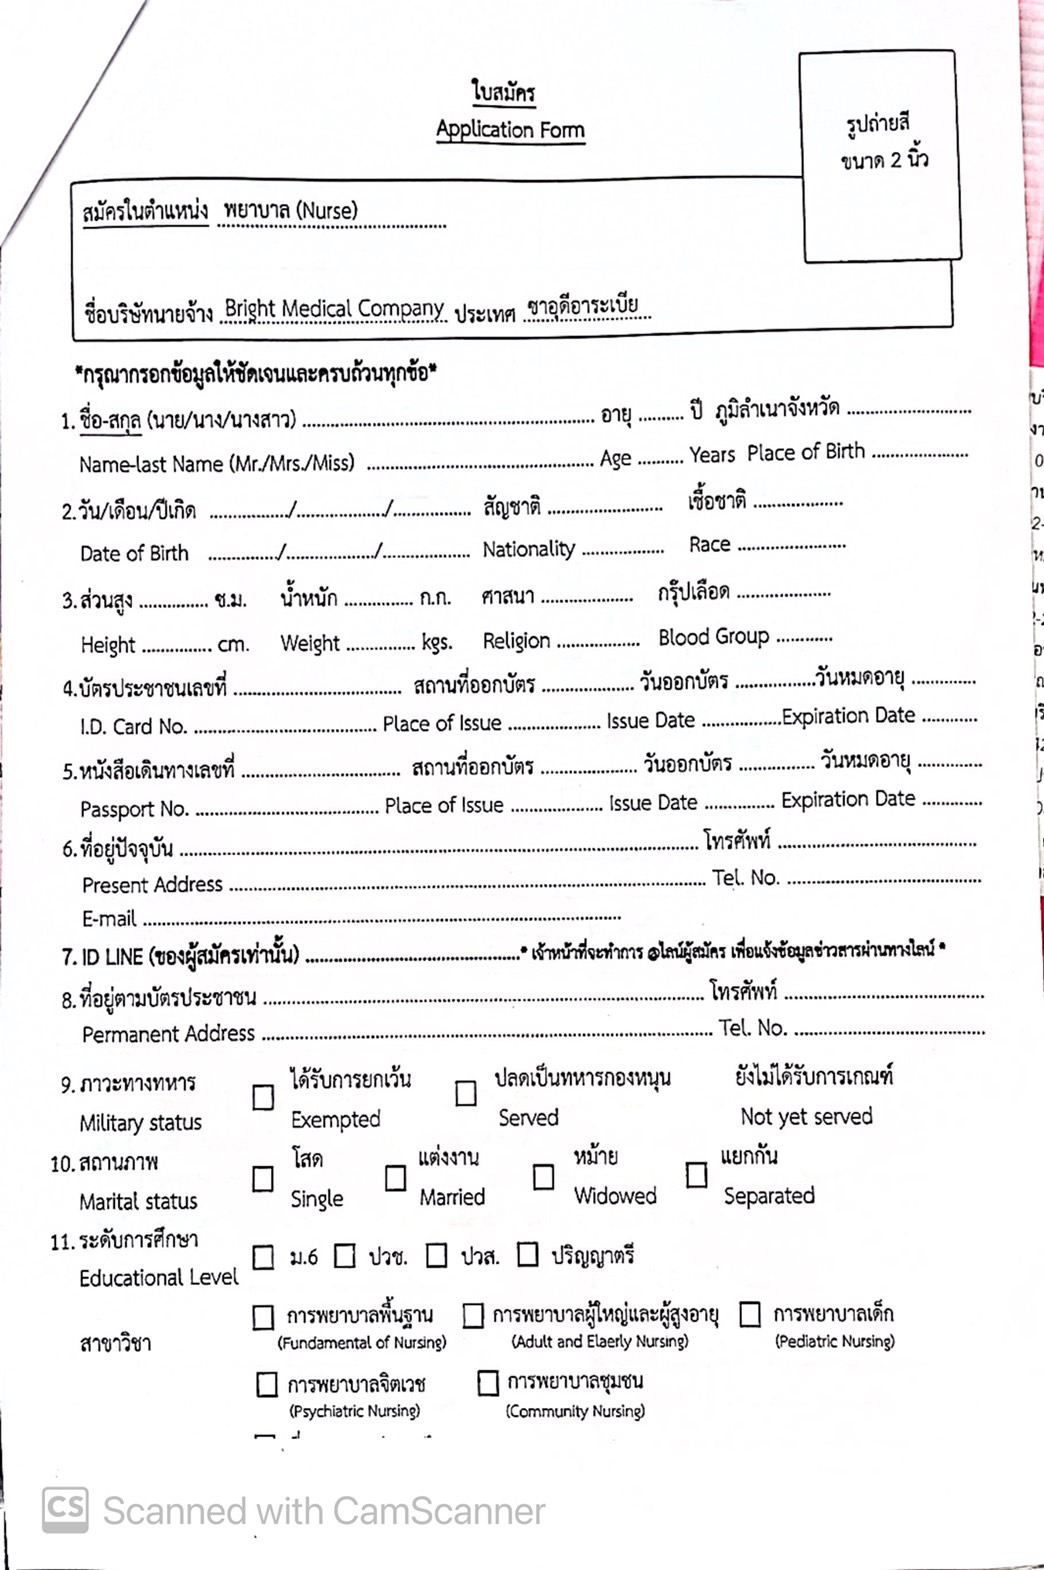 ใบสมัคร
Application Form
รูปถ่ายสี
ขนาด 2 นิ้ว
สมัครในตำแหน่ง พยาบาล (Nurse)
ชื่อบริษัทนายจ้าง Bright Medical Company ประเทศ ซาอุดีอาระเบีย
*กรุณากรอกข้อมูลให้ชัดเจนและครบถ้วนทุกข้อ*
1. ชื่อ-สกุล (นาย/นาง/นางสาว) ........................ อายุ ......... ปี ภูมิลำเนาจังหวัด ........................
Name-last Name (Mr./Mrs./Miss) ........................ Age ......... Years Place of Birth ..................
2.วัน/เดือน/ปีเกิด ................/................../................ สัญชาติ ........................ เชื้อชาติ ..................
Date of Birth ............../................../.................. Nationality ................ Race .....................
3.ส่วนสูง .............. ซ.ม. น้ำหนัก .............. ก.ก. ศาสนา .................. กรุ๊ปเลือด ..................
Height .............. cm. Weight .............. kgs. Religion ................ Blood Group ............
4.บัตรประชาชนเลขที่ ........................ สถานที่ออกบัตร .................. วันออกบัตร ................วันหมดอายุ ............
I.D. Card No. ........................ Place of Issue .................. Issue Date ................Expiration Date ...........
5.หนังสือเดินทางเลขที่ ........................ สถานที่ออกบัตร .................. วันออกบัตร .............. วันหมดอายุ ............
Passport No. ........................ Place of Issue .................. Issue Date .............. Expiration Date ............
6.ที่อยู่ปัจจุบัน ........................ โทรศัพท์ ........................
Present Address ........................ Tel. No. ........................
E-mail ........................
7. ID LINE (ของผู้สมัครเท่านั้น) ........................* เจ้าหน้าที่จะทำการ @ไลน์ผู้สมัคร เพื่อแจ้งข้อมูลข่าวสารผ่านทางไลน์ *
8.ที่อยู่ตามบัตรประชาชน ........................ โทรศัพท์ ........................
Permanent Address ........................ Tel. No. ........................
9. ภาวะทางทหาร ได้รับการยกเว้น ปลดเป็นทหารกองหนุน ยังไม่ได้รับการเกณฑ์
Military status Exempted Served Not yet served
10. สถานภาพ โสด แต่งงาน หม้าย แยกกัน
Marital status Single Married Widowed Separated
11. ระดับการศึกษา ม.6 ปวช. ปวส. ปริญญาตรี
Educational Level
สาขาวิชา การพยาบาลพื้นฐาน การพยาบาลผู้ใหญ่และผู้สูงอายุ การพยาบาลเด็ก
(Fundamental of Nursing) (Adult and Elaerly Nursing) (Pediatric Nursing)
การพยาบาลจิตเวช การพยาบาลชุมชน
(Psychiatric Nursing) (Community Nursing)
CS Scanned with CamScanner